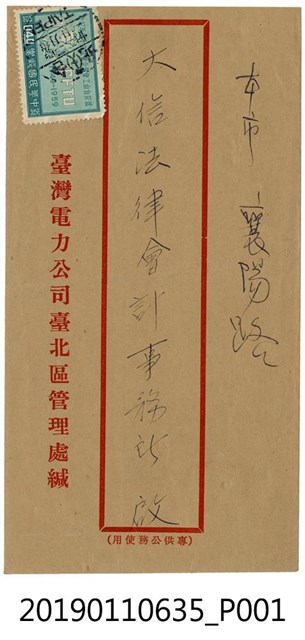 本市襄陽路
大信法律會計事務所 啟
臺灣電力公司臺北區管理處緘
(專供公務使用)
20190110635_P001